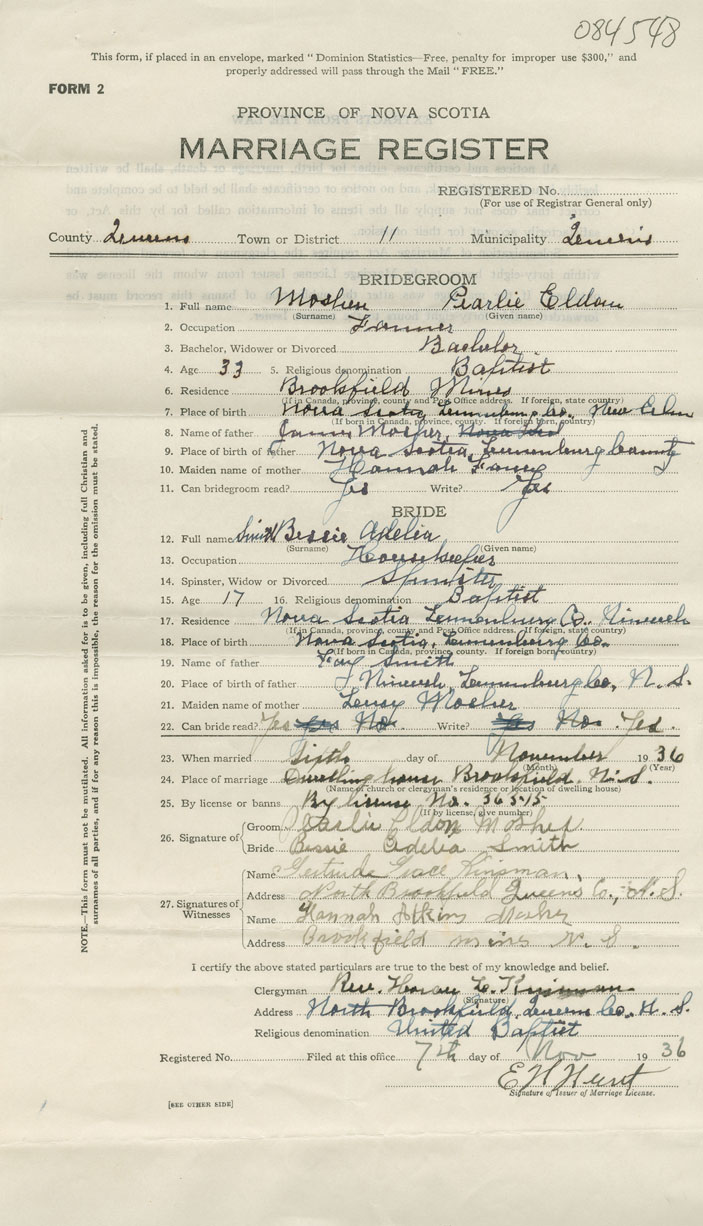 084548
This form, if placed in an envelope, marked “Dominion Statistics—Free, penalty for improper use $300,” and
properly addressed will pass through the Mail “FREE.”
FORM 2
PROVINCE OF NOVA SCOTIA
MARRIAGE REGISTER
REGISTERED No.
(For use of Registrar General only)
County Queens Town or District 11 Municipality Queens
BRIDEGROOM
1. Full name Mosher Pearlie Eldon
(Surname) (Given name)
2. Occupation Farmer
3. Bachelor, Widower or Divorced Bachelor
4. Age 33 5. Religious denomination Baptist
6. Residence Brookfield Mines
(If in Canada, province, county and Post Office address. If foreign, state country)
7. Place of birth Nova Scotia, Lunenburg Co. New Elm
(If born in Canada, province, county. If foreign born, country)
8. Name of father James Mosher, Nova
9. Place of birth of father Nova Scotia, Lunenburg County
10. Maiden name of mother Hannah
11. Can bridegroom read? Yes Write? Yes
BRIDE
12. Full name Smith Bessie Adelia
(Surname) (Given name)
13. Occupation Housekeeper
14. Spinster, Widow or Divorced Spinster
15. Age 17 16. Religious denomination Baptist
17. Residence Nova Scotia Lunenburg Co. Nineveh
(If in Canada, province, county and Post Office address. If foreign, state country)
18. Place of birth Nova Scotia, Lunenburg Co.
(If born in Canada, province, county. If foreign born, country)
19. Name of father Smith
20. Place of birth of father Nineveh, Lunenburg Co, N. S.
21. Maiden name of mother Mosher
22. Can bride read? Yes Yes No. Write? Yes No. Yes.
23. When married Sixth day of November 1936
(Month) (Year)
24. Place of marriage Dwelling house Brookfield. N. S.
(Name of church or clergyman's residence or location of dwelling house)
25. By license or banns By license No. 36515
(If by license, give number)
26. Signature of Groom Pearlie Eldon Mosher
Bride Bessie Adelia Smith
27. Signatures of Witnesses Name Gertrude Grace Kinsman,
Address North Brookfield Queens Co., N. S.
Name Hannah Atkins Mosher
Address Brookfield mines N. S.
I certify the above stated particulars are true to the best of my knowledge and belief.
Clergyman Rev. Horace L. Kinsman
(Signature)
Address North Brookfield, Queens Co. N. S.
Religious denomination United Baptist
Registered No. Filed at this office 7th day of Nov 1936
E W Hunt
Signature of Issuer of Marriage License.
[SEE OTHER SIDE]
NOTE.—This form must not be mutilated. All information asked for is to be given, including full Christian and
surnames of all parties, and if for any reason this is impossible, the reason for the omission must be stated.